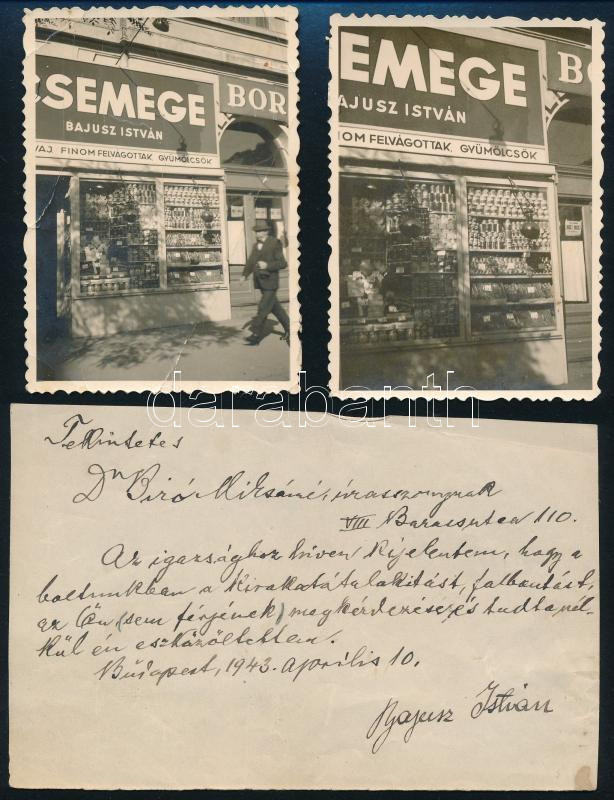 CSEMEGE
BAJUSZ ISTVÁN
VAJ, FINOM FELVÁGOTTAK, GYÜMÖLCSÖK
BOR
EMEGE
BAJUSZ ISTVÁN
NOM FELVÁGOTTAK, GYÜMÖLCSÖK
BO
darabanth
Tekintetes
Dr Biró Miksáné, úrasszonynak
VIII Baross utca 110.
Az igazsághoz híven kijelentem, hogy a
boltunkban a kirakatátalakitást, falbontást,
az Ön (sem férjének) megkérdezése, és tudta nél-
kül én eszközöltettem.
Budapest, 1943. április 10.
Bajusz István